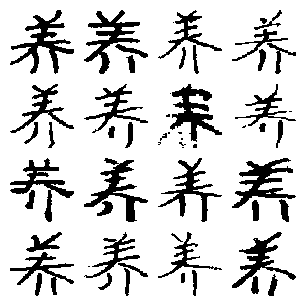 养养养养
养养养养
养养养养
养养养养